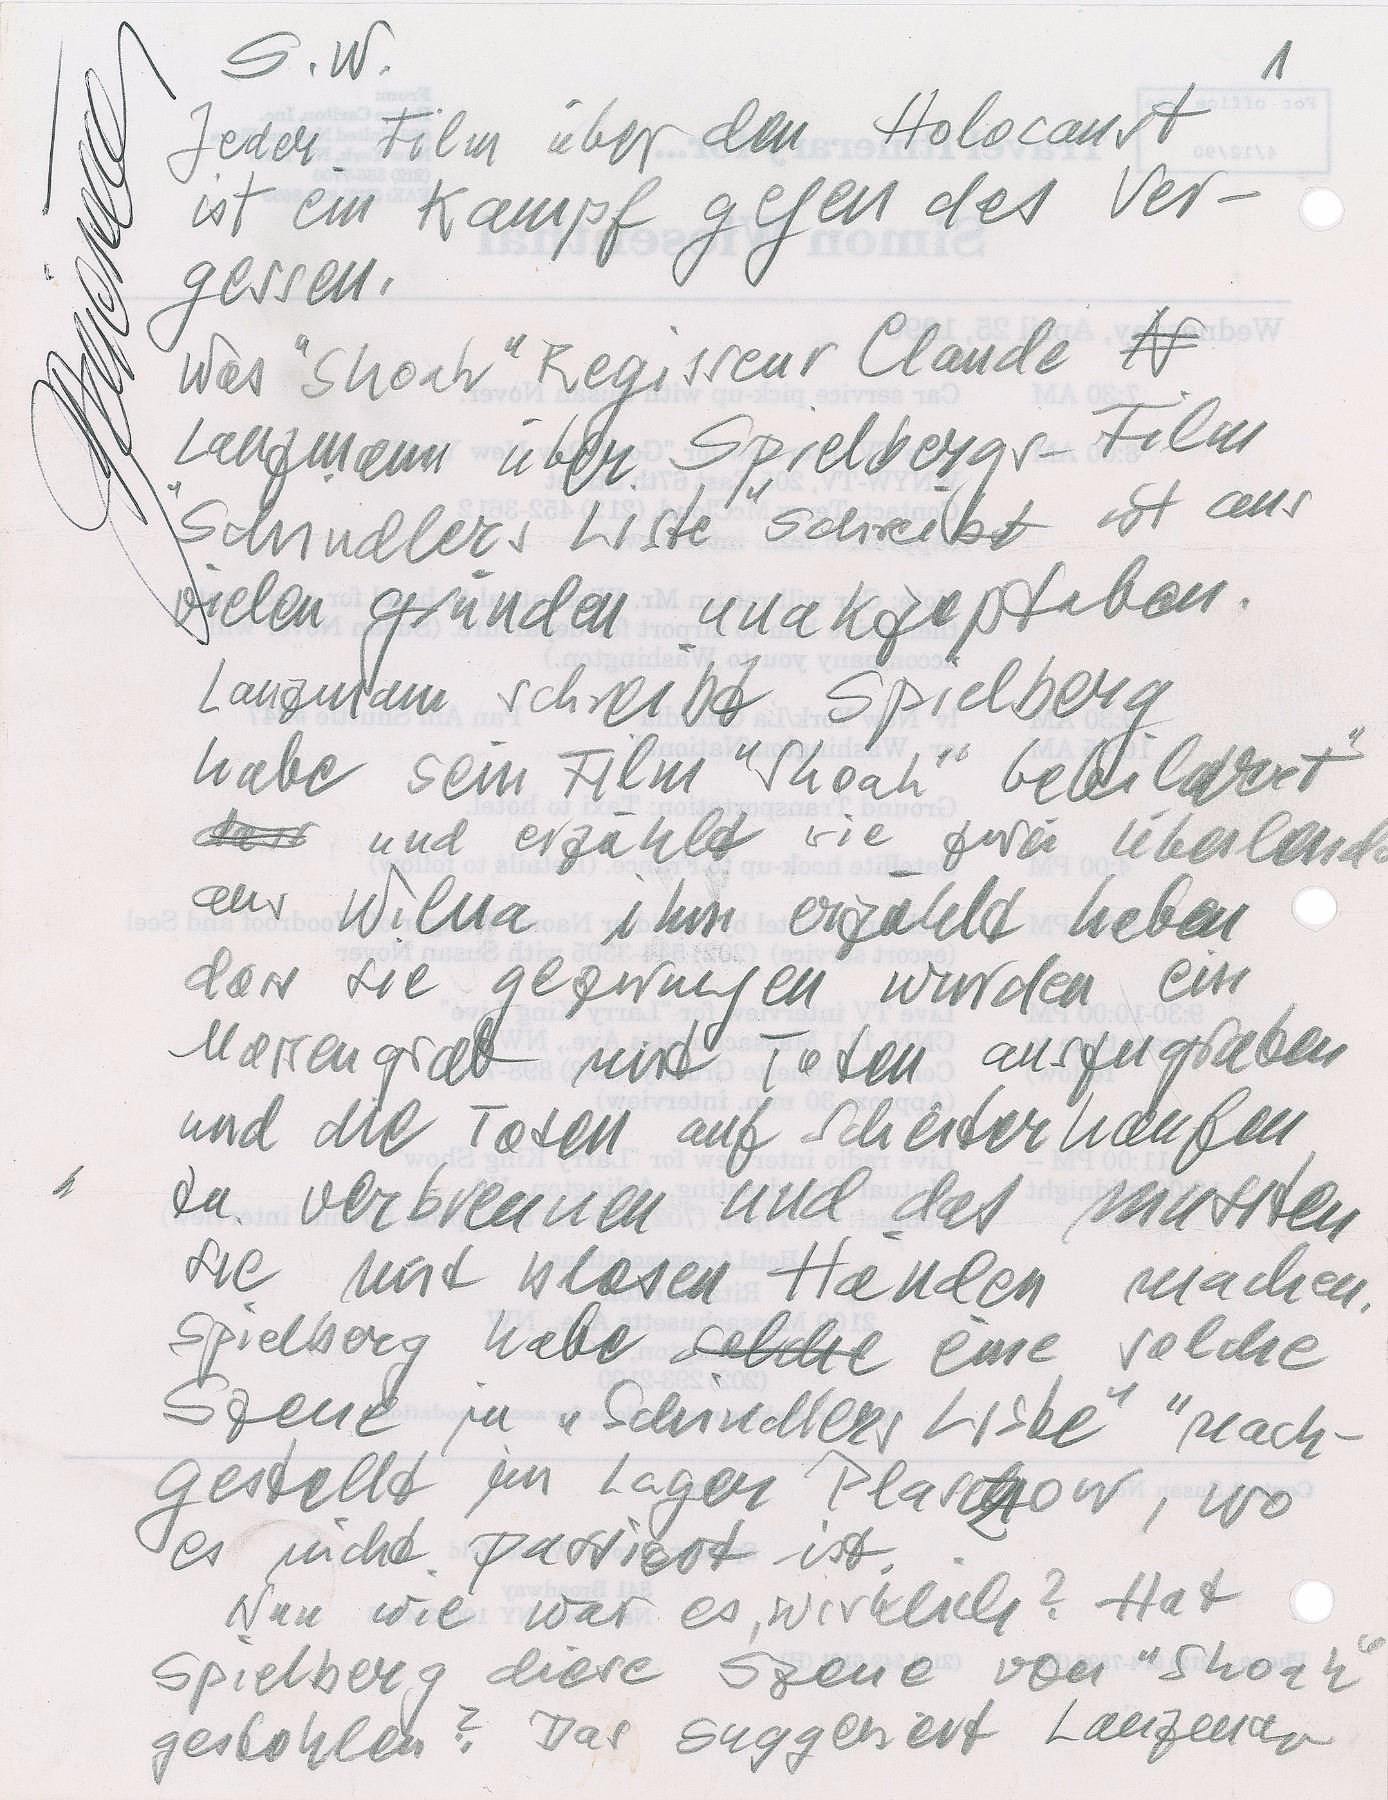 S.W.
1
Jeder Film über den Holocaust
ist ein Kampf gegen das Ver-
gessen.
Was "Shoah" Regisseur Claude
Lanzmann über Spielbergs Film
"Schindlers Liste" schreibt ist aus
vielen gründen unakzeptabel.
Lanzmann schreibt Spielberg
habe sein Film "Shoah" bebildert"
dass und erzählt wie zwei überlende
aus Wilna ihm erzählt haben
dass sie gezwungen wurden ein
Massengrab mit Toten auszugraben
und die Toten auf Scheiterhaufen
zu verbrennen und das mussten
sie mit blosen Händen machen.
Spielberg habe solche eine solche
Szene in "Schindlers Liste" "nach-
gestellt im Lager Plaszow, wo
es nicht passiert ist.
Nun wie war es wirklich? Hat
Spielberg diese Szene von "Shoah"
gestohlen? Das suggeriert Lanzman